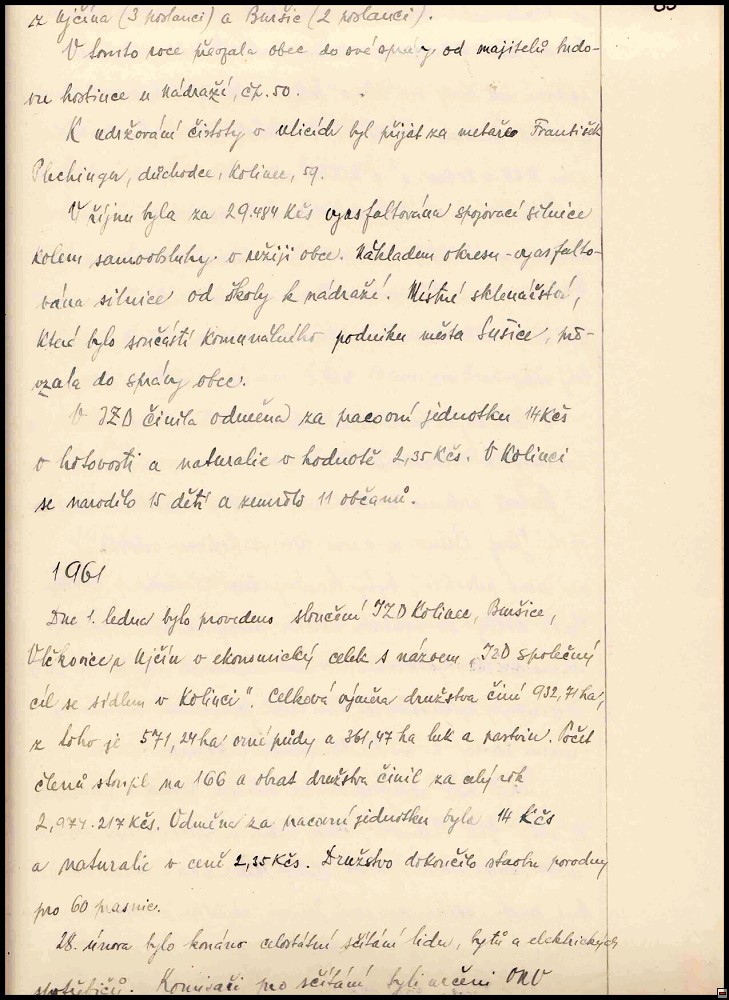 z Ujčína (3 poslanci) a Buršic (2 poslanci).
V tomto roce převzala obec do své správy od majitelů budo-
vu hostince u nádraží, čp. 50.
K udržování čistoty v ulicích byl přijat za metaře František
Plechinger, důchodce, Kolinec, 59.
V říjnu byla za 29.484 Kčs vyasfaltována spojovací silnice
kolem samoobsluhy v režiji obce. Nákladem okresu - vyasfalto-
vána silnice od školy k nádraží. Místní sklenářství,
které bylo součástí Komunálního podniku města Sušice, pře-
vzala do správy obec.
V JZD činila odměna za pracovní jednotku 14 Kčs
v hotovosti a naturalie v hodnotě 2,35 Kčs. V Kolinci
se narodilo 15 dětí a zemřelo 11 občanů.
1961
Dne 1. ledna bylo provedeno sloučení JZD Kolinec, Buršice,
Vlčkovice, Ujčín v ekonomický celek s názvem "JZD společný
cíl se sídlem v Kolinci". Celková výměra družstva činí 932,71 ha,
z toho je 571,24 ha orné půdy a 361,47 ha luk a pastvin. Počet
členů stoupl na 166 a obrat družstva činil za celý rok
2,974.217 Kčs. Odměna za pracovní jednotku byla 14 Kčs
a naturalie v ceně 2,35 Kčs. Družstvo dokončilo stavbu porodny
pro 60 prasnic.
28. února bylo konáno celostátní sčítání lidu, bytů a elektrických
spotřebičů. Komisaři pro sčítání byli určeni ONV